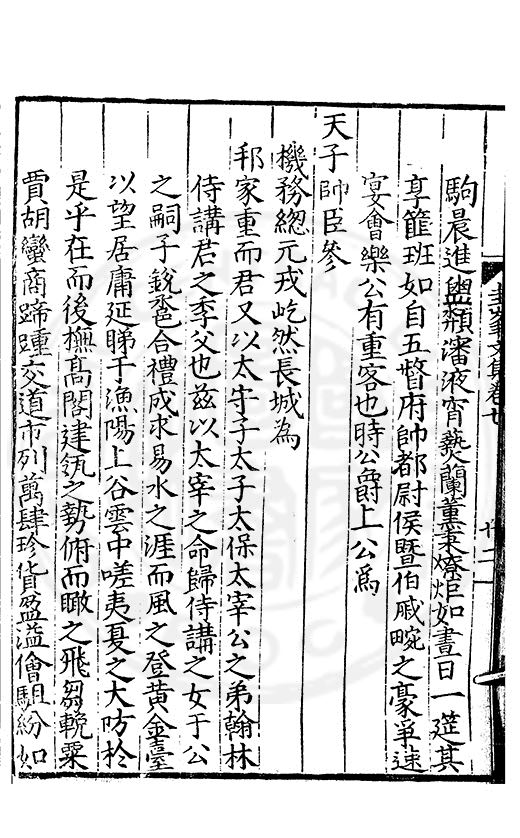 駒晨進盥頮瀋液宵爇蘭薰秉燎炬如晝日一筵其
享篚班如自五督府帥都尉侯暨伯戚畹之豪爭速
宴會樂公有重客也時公爵上公爲
天子帥臣參
機務緫元戎屹然長城為
邦家重而君又以太宰子太子太保太宰公之弟翰林
侍講君之季父也茲以太宰之命歸侍講之女于公
之嗣子鋭鬯合禮成求易水之涯而風之登黄金臺
以望居庸延睇于漁陽上谷雲中嗟夷夏之大防於
是乎在而後撫髙閣建瓴之埶俯而瞰之飛芻輓粟
賈胡蠻商蹄踵交道市列萬肆珍貨盈溢儈駔紛如
圭峯文集卷七